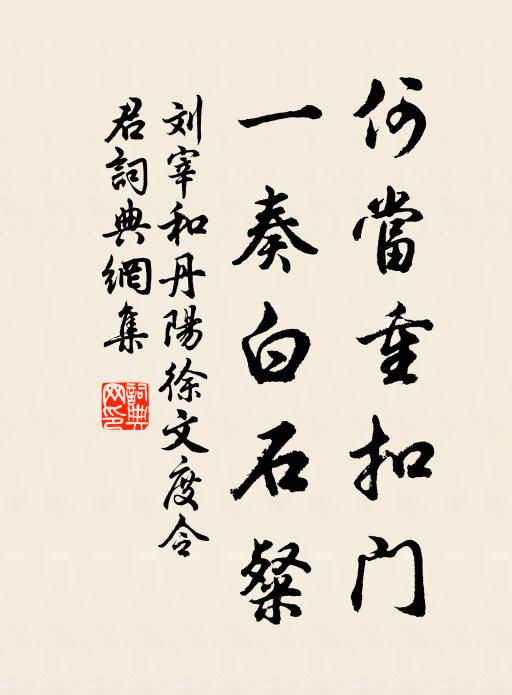 何當重扣门
一奏白石粲
刘宰和丹陽徐文度令
君詞典網集
詞典網印